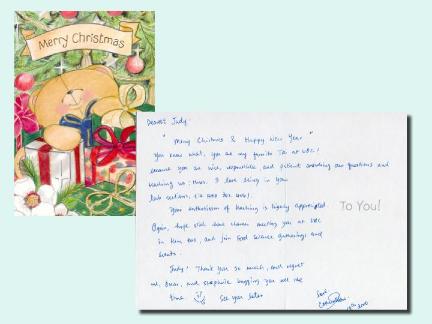 Merry Christmas
Dearest Judy:
" Merry Christmas & Happy New Year "
You know what, you are my favorite TA at UBC!
because you are nice, responsible and patient answering our questions and
teaching us. I love being in your
lab sections,
Your enthusiasm of teaching is highly appreciated.
To You!
Again, hope still have chance meeting you at UBC
in term two, and join Food Science gatherings and
events.
Judy! Thank you so much, and regret
Oscar, and Stephanie bugging you all the
time See you later
Love